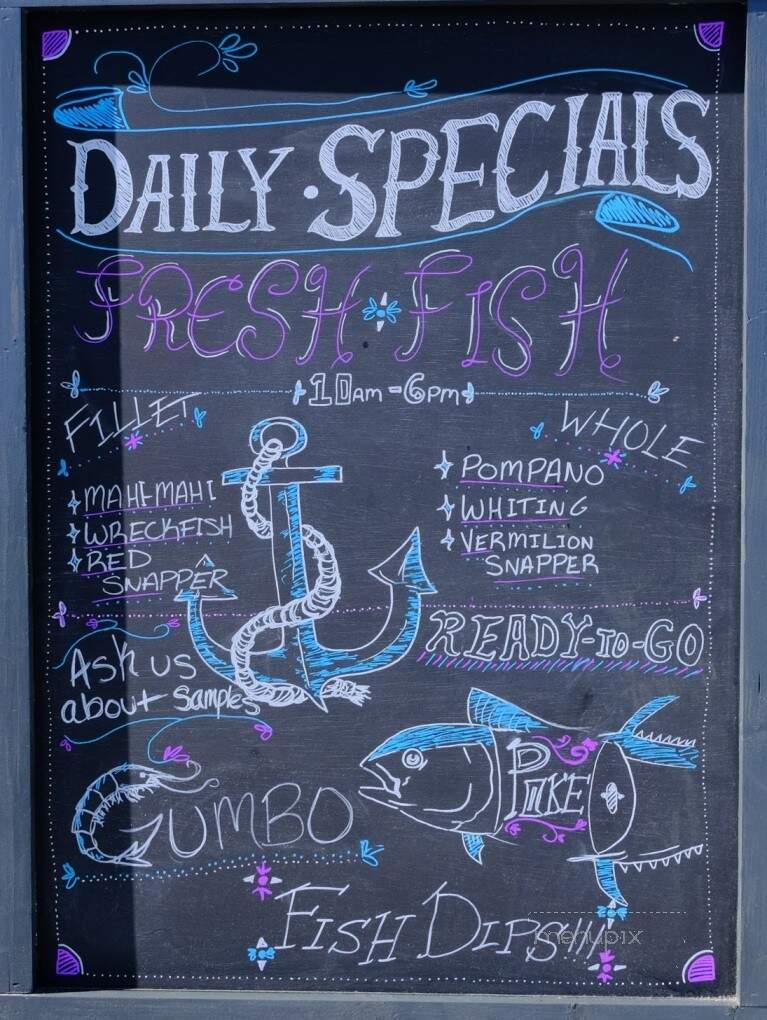 DAILY · SPECIALS
FRESH · FISH
10AM - 6PM
FILLET
MAHI-MAHI
WRECKFISH
RED
SNAPPER
WHOLE
POMPANO
WHITING
VERMILION
SNAPPER
Ask us
about samples
READY-TO-GO
POKE
GUMBO
FISH DIPS!!!
menupix